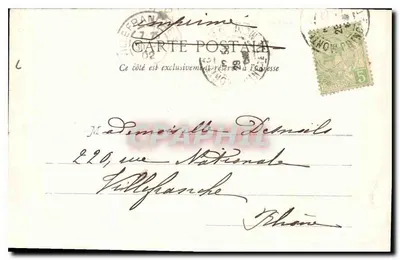 Imprimé
CARTE POSTALE
Ce côté est exclusivement réservé à l'adresse
5
Mademoiselle Desnoils
220, rue Nationale
Villefranche
Rhône